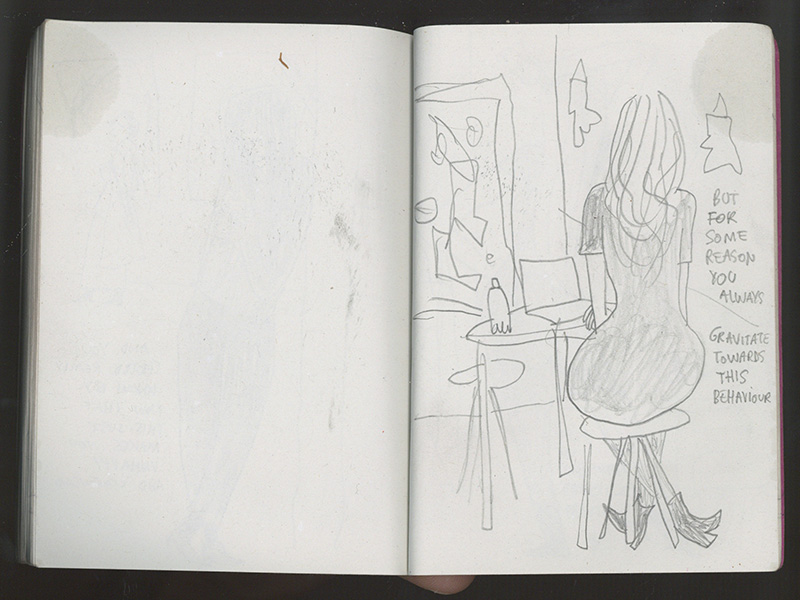 BUT
FOR
SOME
REASON
YOU
ALWAYS
GRAVITATE
TOWARDS
THIS
BEHAVIOUR